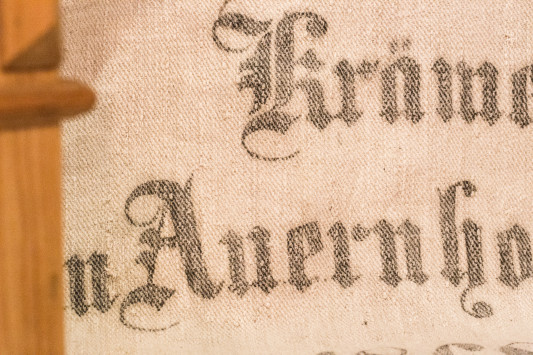 Kräme
n Auernho